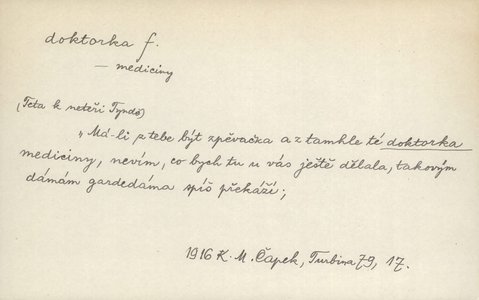 doktorka f.
— medicíny
(Teta k neteři Tyndě)
„Má-li z tebe být zpěvačka a z tamhle té doktorka
medicíny, nevím, co bych tu u vás ještě dělala, takovým
dámám gardedáma spíš překáží;
1916 K. M. Čapek, Turbina 79, 17.